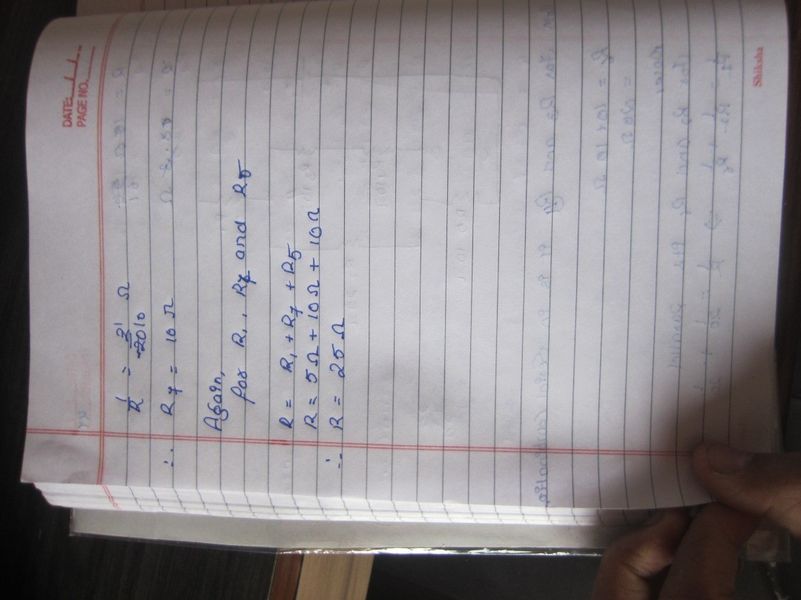 DATE:
PAGE NO.
1/R = 2/20 10 Ω
∴ R7 = 10 Ω
Again,
for R1, R7 and R5
R = R1 + R7 + R5
R = 5 Ω + 10 Ω + 10 Ω
∴ R = 25 Ω
Shiksha